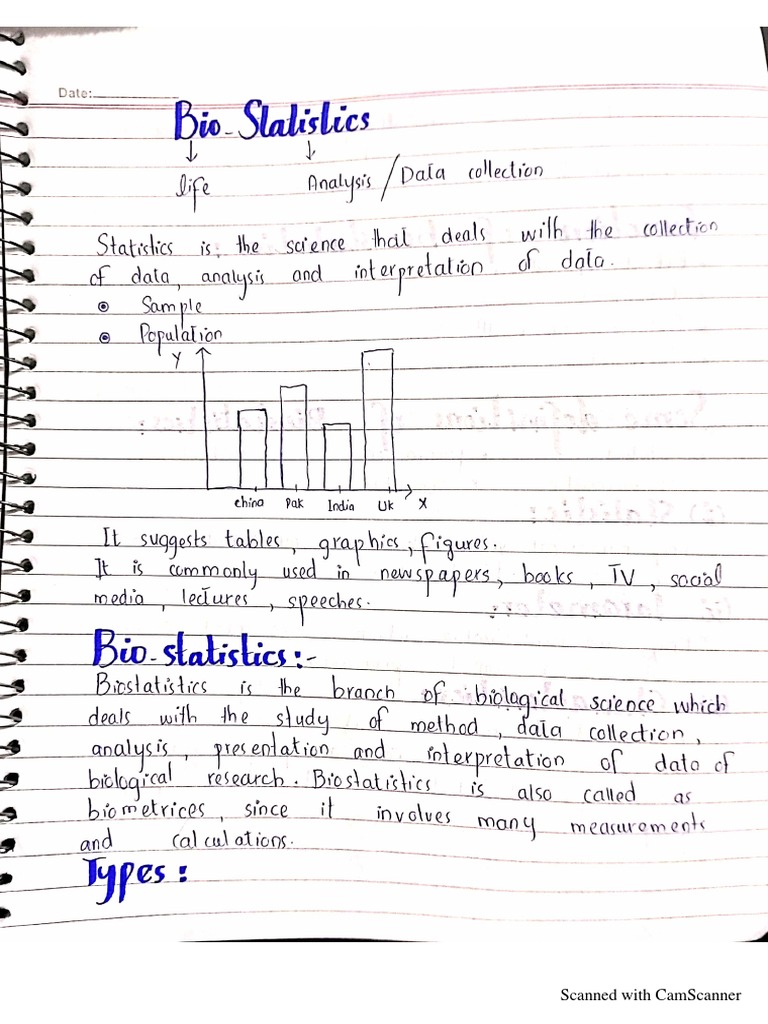 Date:
Bio-Statistics
life Analysis / Data collection
Statistics is the science that deals with the collection
of data, analysis and interpretation of data.
Sample
Population
Y
china Pak India Uk X
It suggests tables, graphics, figures.
It is commonly used in newspapers, books, TV, social
media, lectures, speeches.
Bio-statistics:-
Biostatistics is the branch of biological science which
deals with the study of method, data collection,
analysis, presentation and interpretation of data of
biological research. Biostatistics is also called as
biometrices, since it involves many measurements
and calculations.
Types:
Scanned with CamScanner